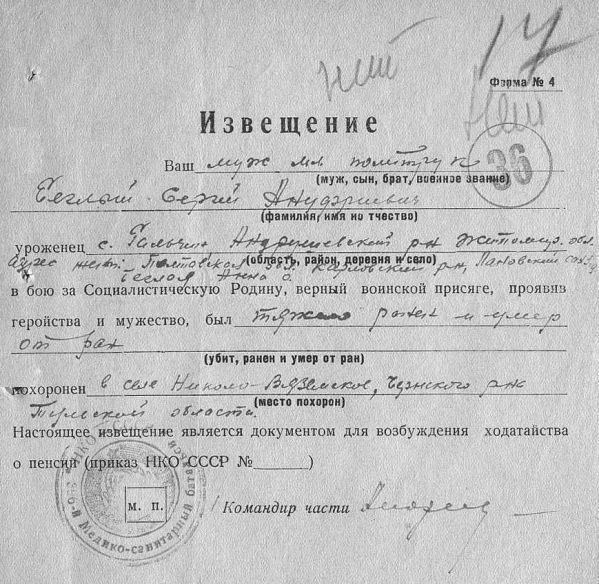 нет 17
Форма № 4
Нет
36
Извещение
Ваш муж мл. политрук
(муж, сын, брат, военное звание)
Беглый Сергей
(фамилия, имя ио тчество)
уроженец с. Гальчин Андрушевский р-н Житомир. обл.
(область, район, деревня и село)
Адрес жены: Полтовской обл. Карловский р-н,
Беглая Анна
в бою за Социалистическую Родину, верный воинской присяге, проявив
геройства и мужество, был тяжело ранен и умер
от ран
(убит, ранен и умер от ран)
похоронен в селе Николо-Вяземское, р-на
(место похорон)
Тульской области.
Настоящее извещение является документом для возбуждения ходатайства
о пенсии (приказ НКО СССР №______)
м. п.
Командир части
НКО СССР
Медико-санитарный